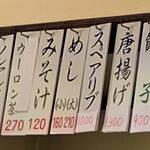 唐揚げ
900
スペアリブ
1000
めし
(小)(大)
160 210
みそ汁
120
ウーロン茶
270